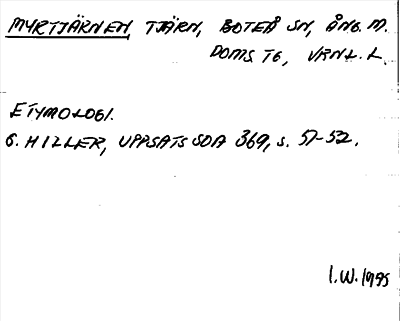 MYRTJÄRNEN TJÄRN, BOTEÅ SN, ÅNG. M.
DOMS. TG, VRNL. L.
ETYMOLOGI.
G. HILLER, UPPSATS SOA 369, s. 57-52.
I.W. 1995